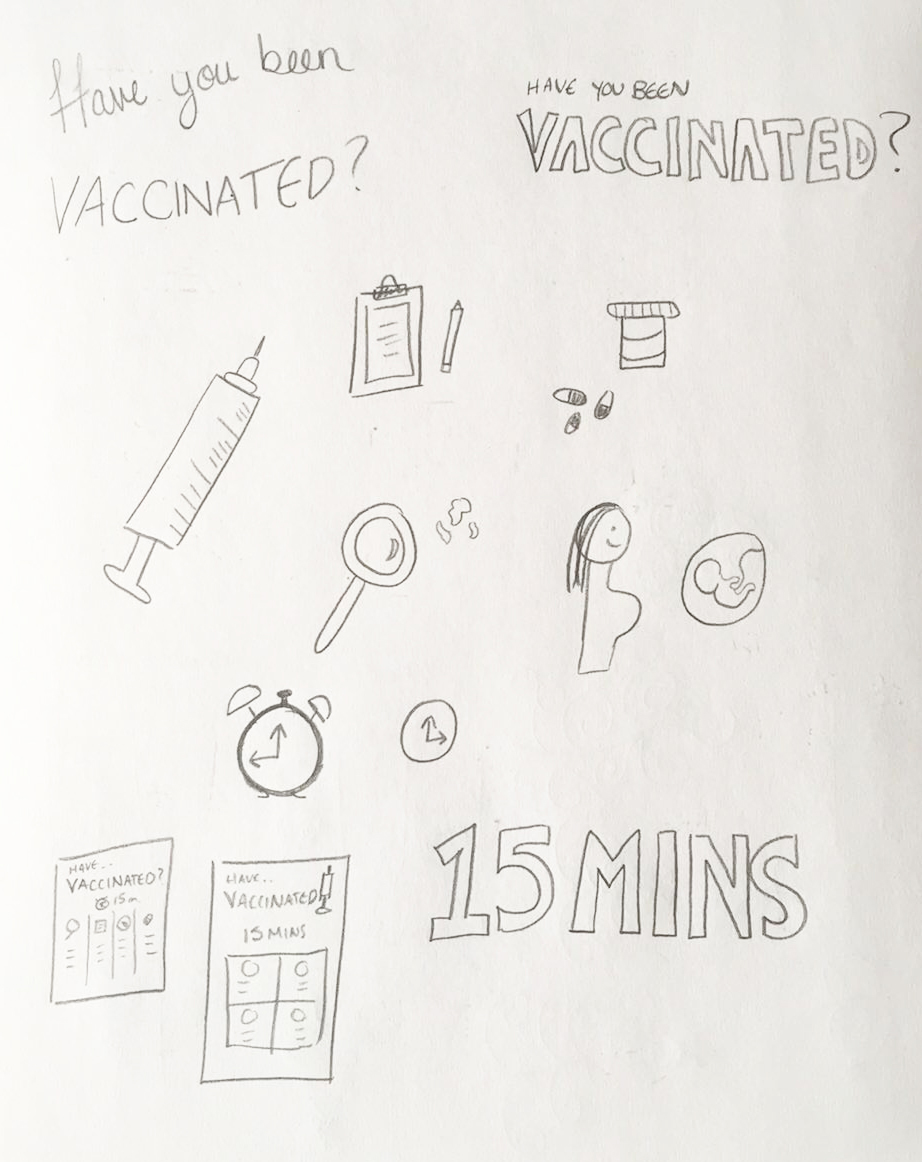 Have you been
VACCINATED?
HAVE YOU BEEN
VACCINATED?
15 MINS
HAVE..
VACCINATED?
15m
HAVE..
VACCINATED
15 MINS